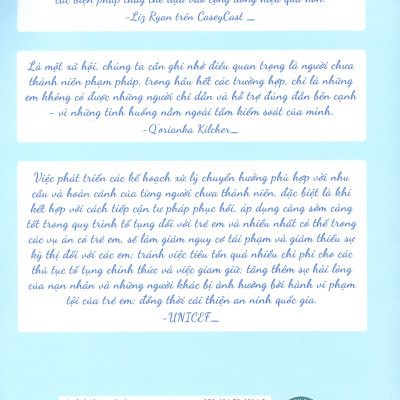 các biện pháp thay thế dựa vào cộng đồng hiệu quả hơn.
-Liz Ryan trên CaseyCast _
Là một xã hội, chúng ta cần ghi nhớ điều quan trọng là người chưa
thành niên phạm pháp, trong hầu hết các trường hợp, chỉ là những
em không có được những người chỉ dẫn và hỗ trợ đúng đắn bên cạnh
- vì những tình huống nằm ngoài tầm kiểm soát của mình.
-Q'orianka Kilcher_
Việc phát triển các kế hoạch xử lý chuyển hướng phù hợp với nhu
cầu và hoàn cảnh của từng người chưa thành niên, đặc biệt là khi
kết hợp với cách tiếp cận tư pháp phục hồi, áp dụng càng sớm càng
tốt trong quy trình tố tụng đối với trẻ em và nhiều nhất có thể trong
các vụ án có trẻ em, sẽ làm giảm nguy cơ tái phạm và giảm thiểu sự
kỳ thị đối với các em; tránh việc tiêu tốn quá nhiều chi phí cho các
thủ tục tố tụng chính thức và việc giam giữ; tăng thêm sự hài lòng
của nạn nhân và những người khác bị ảnh hưởng bởi hành vi phạm
tội của trẻ em; đồng thời cải thiện an ninh quốc gia.
-UNICEF_